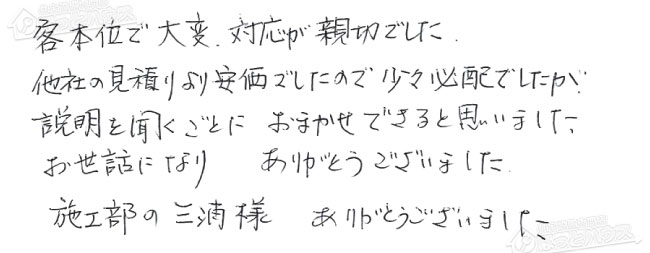 客本位で大変、対応が親切でした.
他社の見積りより安価でしたので少々心配でしたが、
説明を聞くごとに おまかせできると思いました
お世話になり ありがとうございました.
施工部の三浦様 ありがとうございました